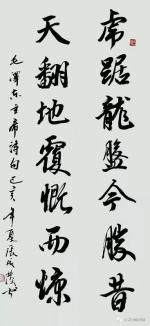 虎踞龍盤今勝昔
天翻地覆慨而慷
毛澤東主席詩句己亥年夏張成